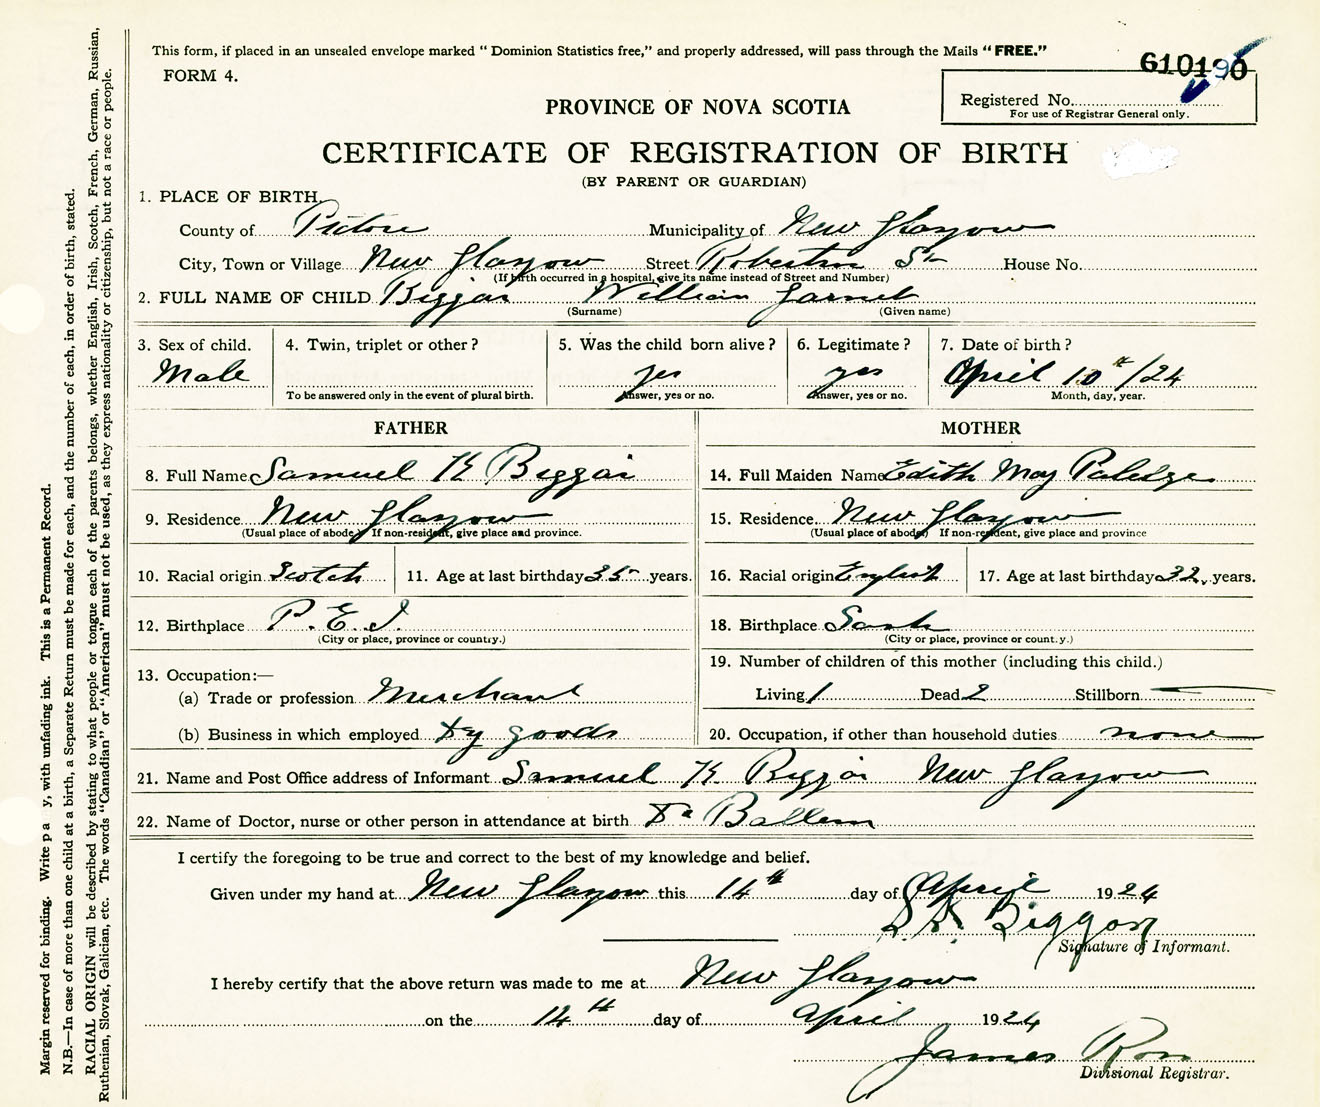 This form, if placed in an unsealed envelope marked "Dominion Statistics free," and properly addressed, will pass through the Mails "FREE."
FORM 4.
610190
Registered No.
For use of Registrar General only.
PROVINCE OF NOVA SCOTIA
CERTIFICATE OF REGISTRATION OF BIRTH
(BY PARENT OR GUARDIAN)
1. PLACE OF BIRTH.
County of Pictou Municipality of New Glasgow
City, Town or Village New Glasgow Street Robertson St House No.
(If birth occurred in a hospital, give its name instead of Street and Number)
2. FULL NAME OF CHILD Biggar William Garnet
(Surname) (Given name)
3. Sex of child. 4. Twin, triplet or other? 5. Was the child born alive? 6. Legitimate? 7. Date of birth?
Male yes yes April 10th/24
To be answered only in the event of plural birth. Answer, yes or no. Answer, yes or no. Month, day, year.
FATHER
8. Full Name Samuel K Biggar
9. Residence New Glasgow
(Usual place of abode) If non-resident, give place and province.
10. Racial origin Scotch 11. Age at last birthday 35 years.
12. Birthplace P.E.I.
(City or place, province or country.)
13. Occupation:—
(a) Trade or profession Merchant
(b) Business in which employed Dry goods
MOTHER
14. Full Maiden Name Edith May
15. Residence New Glasgow
(Usual place of abode) If non-resident, give place and province
16. Racial origin English 17. Age at last birthday 32 years.
18. Birthplace Sask
(City or place, province or country.)
19. Number of children of this mother (including this child.)
Living 1 Dead 2 Stillborn —
20. Occupation, if other than household duties none
21. Name and Post Office address of Informant Samuel K Biggar New Glasgow
22. Name of Doctor, nurse or other person in attendance at birth Dr Ballem
I certify the foregoing to be true and correct to the best of my knowledge and belief.
Given under my hand at New Glasgow this 14th day of April 1924
S. K. Biggar
Signature of Informant.
I hereby certify that the above return was made to me at New Glasgow
on the 14th day of April 1924
James Ross
Divisional Registrar.
Margin reserved for binding. Write p a y, with unfading ink. This is a Permanent Record.
N.B.—In case of more than one child at a birth, a Separate Return must be made for each, and the number of each, in order of birth, stated.
RACIAL ORIGIN will be described by stating to what people or tongue each of the parents belongs, whether English, Irish, Scotch, French, German, Russian,
Ruthenian, Slovak, Galician, etc. The words "Canadian" or "American" must not be used, as they express nationality or citizenship, but not a race or people.